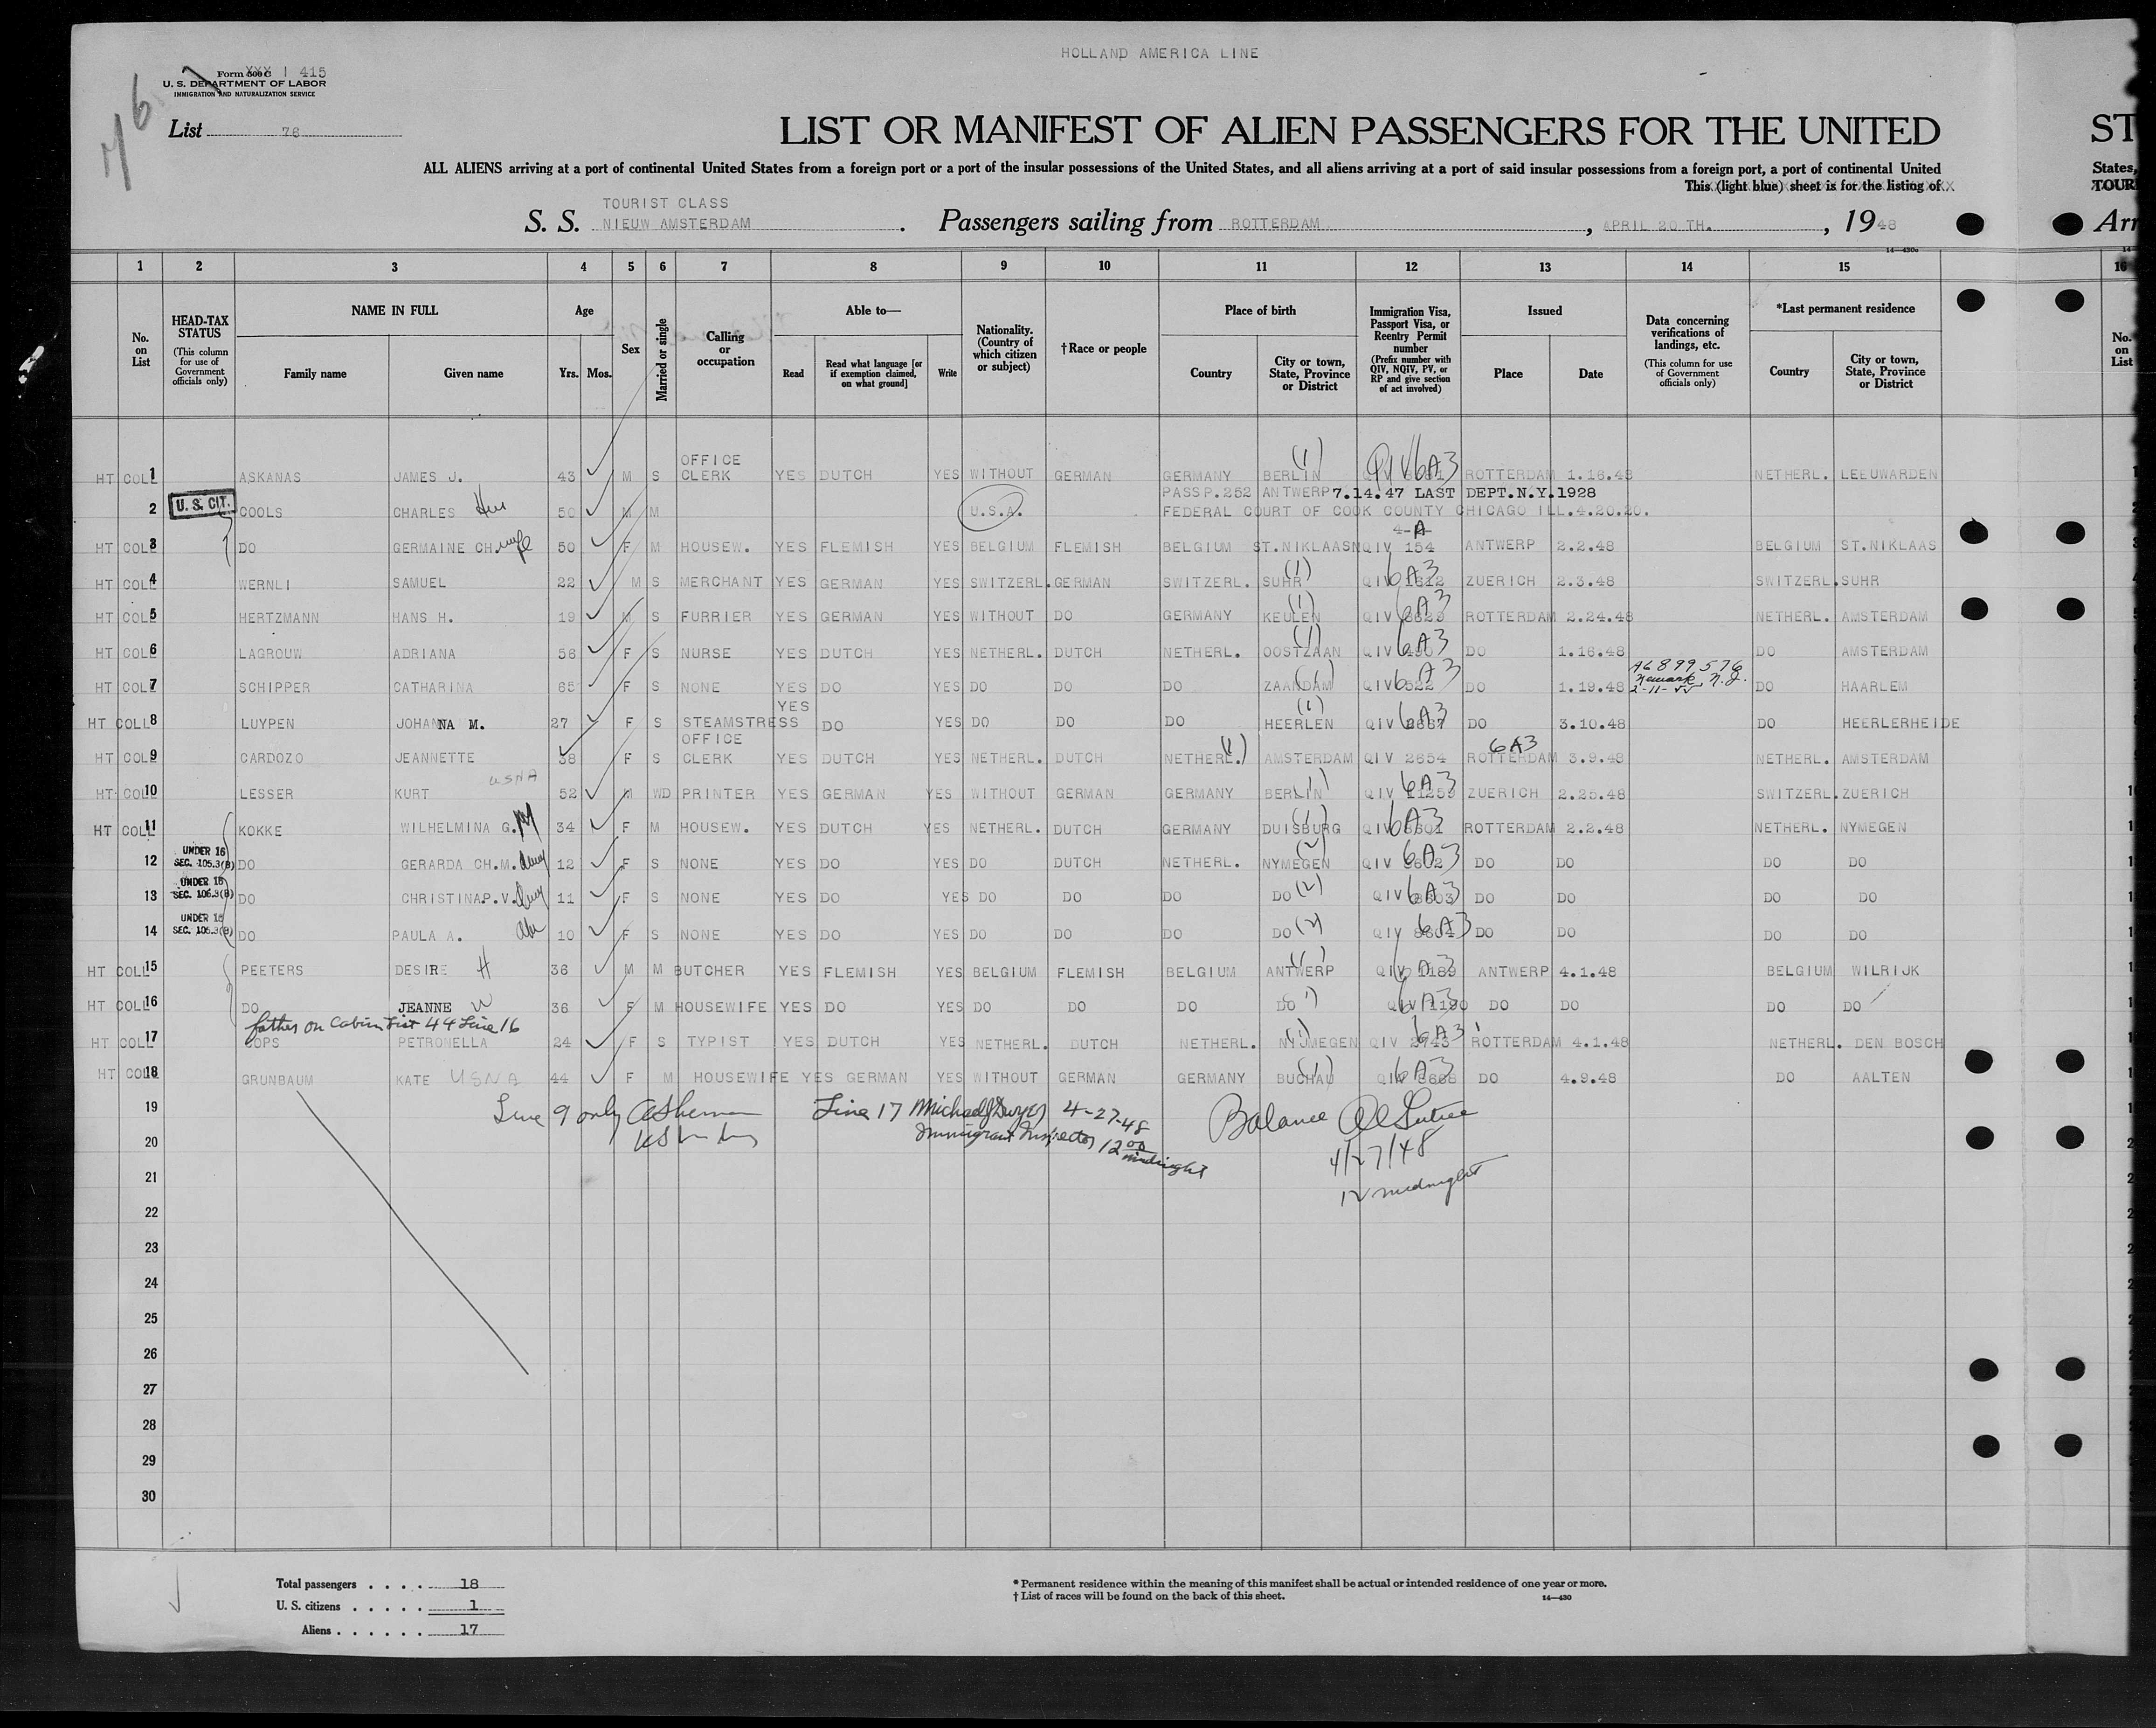 HOLLAND AMERICA LINE
Form 500 C XXX I 415
U. S. DEPARTMENT OF LABOR
IMMIGRATION AND NATURALIZATION SERVICE
76
List 76
LIST OR MANIFEST OF ALIEN PASSENGERS FOR THE UNITED ST
ALL ALIENS arriving at a port of continental United States from a foreign port or a port of the insular possessions of the United States, and all aliens arriving at a port of said insular possessions from a foreign port, a port of continental United States,
This (light blue) sheet is for the listing of TOUR
TOURIST CLASS
S. S. NIEUW AMSTERDAM . Passengers sailing from ROTTERDAM , APRIL 20 TH. , 1948 Arr
1 2 3 4 5 6 7 8 9 10 11 12 13 14 15 16
No. on List
HEAD-TAX STATUS (This column for use of Government officials only)
NAME IN FULL Family name Given name
Age Yrs. Mos.
Sex
Married or single
Calling or occupation
Able to— Read Read what language [or if exemption claimed, on what ground] Write
Nationality. (Country of which citizen or subject)
†Race or people
Place of birth Country City or town, State, Province or District
Immigration Visa, Passport Visa, or Reentry Permit number (Prefix number with QIV, NQIV, PV, or RP and give section of act involved)
Issued Place Date
Data concerning verifications of landings, etc. (This column for use of Government officials only)
*Last permanent residence Country City or town, State, Province or District
No. on List
HT COLL 1 ASKANAS JAMES J. 43 M S OFFICE CLERK YES DUTCH YES WITHOUT GERMAN GERMANY BERLIN (1) QIV 6A3 ROTTERDAM 1.16.48 NETHERL. LEEUWARDEN
PASSP.252 ANTWERP 7.14.47 LAST DEPT.N.Y.1928
2 U. S. CIT. COOLS CHARLES 50 M M U.S.A. FEDERAL COURT OF COOK COUNTY CHICAGO ILL.4.20.20.
HT COLL 3 DO GERMAINE CH. wife 50 F M HOUSEW. YES FLEMISH YES BELGIUM FLEMISH BELGIUM ST.NIKLAAS NQIV 154 4-A ANTWERP 2.2.48 BELGIUM ST.NIKLAAS
HT COLL 4 WERNLI SAMUEL 22 M S MERCHANT YES GERMAN YES SWITZERL. GERMAN SWITZERL. SUHR (1) QIV 6A3 ZUERICH 2.3.48 SWITZERL. SUHR
HT COLL 5 HERTZMANN HANS H. 19 M S FURRIER YES GERMAN YES WITHOUT DO GERMANY KEULEN (1) QIV 6A3 ROTTERDAM 2.24.48 NETHERL. AMSTERDAM
HT COLL 6 LAGROUW ADRIANA 56 F S NURSE YES DUTCH YES NETHERL. DUTCH NETHERL. OOSTZAAN (1) QIV 6A3 DO 1.16.48 DO AMSTERDAM
HT COLL 7 SCHIPPER CATHARINA 65 F S NONE YES DO YES DO DO DO ZAANDAM (1) QIV 6A3 DO 1.19.48 A6899576 Newark N.J. DO HAARLEM
HT COLL 8 LUYPEN JOHANNA M. 27 F S STEAMSTRESS YES DO YES DO DO DO HEERLEN (1) QIV 6A3 DO 3.10.48 DO HEERLERHEIDE
HT COLL 9 CARDOZO JEANNETTE 38 F S OFFICE CLERK YES DUTCH YES NETHERL. DUTCH NETHERL. (1) AMSTERDAM QIV 2654 6A3 ROTTERDAM 3.9.48 NETHERL. AMSTERDAM
USNA
HT COLL 10 LESSER KURT 52 M WD PRINTER YES GERMAN YES WITHOUT GERMAN GERMANY BERLIN (1) QIV 6A3 ZUERICH 2.25.48 SWITZERL. ZUERICH
HT COLL 11 KOKKE WILHELMINA G. M 34 F M HOUSEW. YES DUTCH YES NETHERL. DUTCH GERMANY DUISBURG (1) QIV 6A3 ROTTERDAM 2.2.48 NETHERL. NYMEGEN
12 UNDER 16 SEC. 105.3(B) DO GERARDA CH.M. 12 F S NONE YES DO YES DO DUTCH NETHERL. NYMEGEN (2) QIV 6A3 DO DO DO DO
13 UNDER 16 SEC. 105.3(B) DO CHRISTINA P.V. 11 F S NONE YES DO YES DO DO DO DO (2) QIV 6A3 DO DO DO DO
14 UNDER 16 SEC. 105.3(B) DO PAULA A. 10 F S NONE YES DO YES DO DO DO DO (2) QIV 6A3 DO DO DO DO
HT COLL 15 PEETERS DESIRE H 36 M M BUTCHER YES FLEMISH YES BELGIUM FLEMISH BELGIUM ANTWERP (1) QIV 1189 6A3 ANTWERP 4.1.48 BELGIUM WILRIJK
HT COLL 16 DO JEANNE W 36 F M HOUSEWIFE YES DO YES DO DO DO DO (1) QIV 1190 6A3 DO DO DO DO
father on Cabin List 44 Line 16
HT COLL 17 COPS PETRONELLA 24 F S TYPIST YES DUTCH YES NETHERL. DUTCH NETHERL. NIJMEGEN (1) QIV 2743 6A3 ROTTERDAM 4.1.48 NETHERL. DEN BOSCH
HT COLL 18 GRUNBAUM KATE USNA 44 F M HOUSEWIFE YES GERMAN YES WITHOUT GERMAN GERMANY BUCHAU (1) QIV 6A3 DO 4.9.48 DO AALTEN
19 Line 9 only Line 17 Michael J Dwyer 4-27-48 Balance
20 Immigrant Inspector 12 00 midnight 4/27/48
21 12 midnight
22
23
24
25
26
27
28
29
30
Total passengers . . . . 18
U. S. citizens . . . . . 1
Aliens . . . . . . 17
* Permanent residence within the meaning of this manifest shall be actual or intended residence of one year or more.
† List of races will be found on the back of this sheet.
14—430